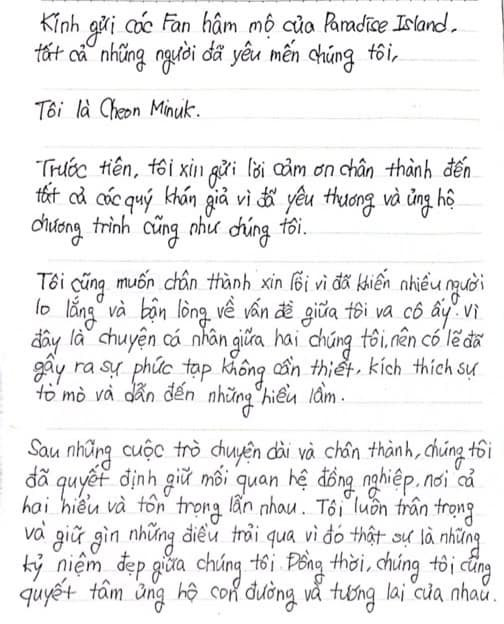 Kính gửi các Fan hâm mộ của Paradise Island.
tất cả những người đã yêu mến chúng tôi,
Tôi là Cheon Minuk.
Trước tiên, tôi xin gửi lời cảm ơn chân thành đến
tất cả các quý khán giả vì đã yêu thương và ủng hộ
chương trình cũng như chúng tôi.
Tôi cũng muốn chân thành xin lỗi vì đã khiến nhiều người
lo lắng và bận lòng về vấn đề giữa tôi và cô ấy. vì
đây là chuyện cá nhân giữa hai chúng tôi, nên có lẽ đã
gây ra sự phức tạp không cần thiết, kích thích sự
tò mò và dẫn đến những hiểu lầm.
Sau những cuộc trò chuyện dài và chân thành, chúng tôi
đã quyết định giữ mối quan hệ đồng nghiệp, nơi cả
hai hiểu và tôn trọng lẫn nhau. Tôi luôn trân trọng
và giữ gìn những điều trải qua vì đó thật sự là những
kỷ niệm đẹp giữa chúng tôi. Đồng thời, chúng tôi cũng
quyết tâm ủng hộ con đường và tương lai của nhau.